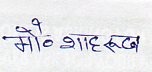 मो० शाहरूख